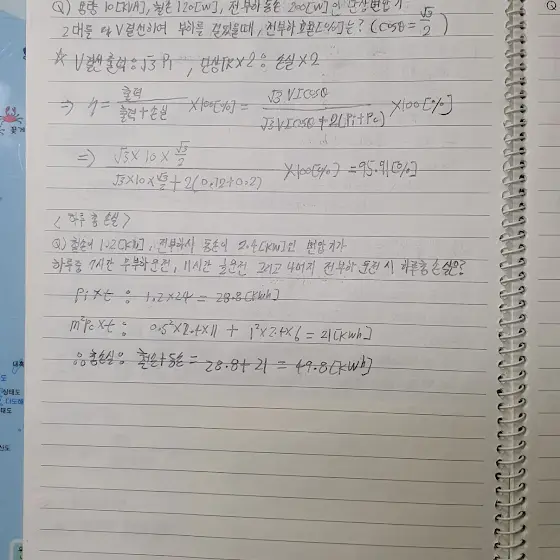 Q) 용량 10[kVA], 철손 120[W], 전부하동손 200[W]인 단상변압기
2대를 V결선하여 부하를 걸었을때, 전부하효율[%]은? (cosθ = √3/2)
☆ V결선출력: √3 P1, 단상TR×2: 손실×2
⇒ η = 출력/출력+손실 ×100[%] = √3VIcosθ/√3VIcosθ+2(Pi+Pc) ×100[%]
⇒ √3×10×√3/2/√3×10×√3/2+2(0.12+0.2) ×100[%] = 95.91[%]
<하루 총 손실>
Q) 철손이 1.2[kW], 전부하시 동손이 2.4[kW]인 변압기가
하루중 7시간 무부하운전, 11시간 운전 그리고 나머지 전부하 운전 시 하루총손실은?
Pi×t : 1.2×24 = 28.8[kWh]
m²Pc×t : 0.5²×2.4×11 + 1²×2.4×6 = 21[kWh]
총손실: 철손+동손 = 28.8+21 = 49.8[kWh]
Q